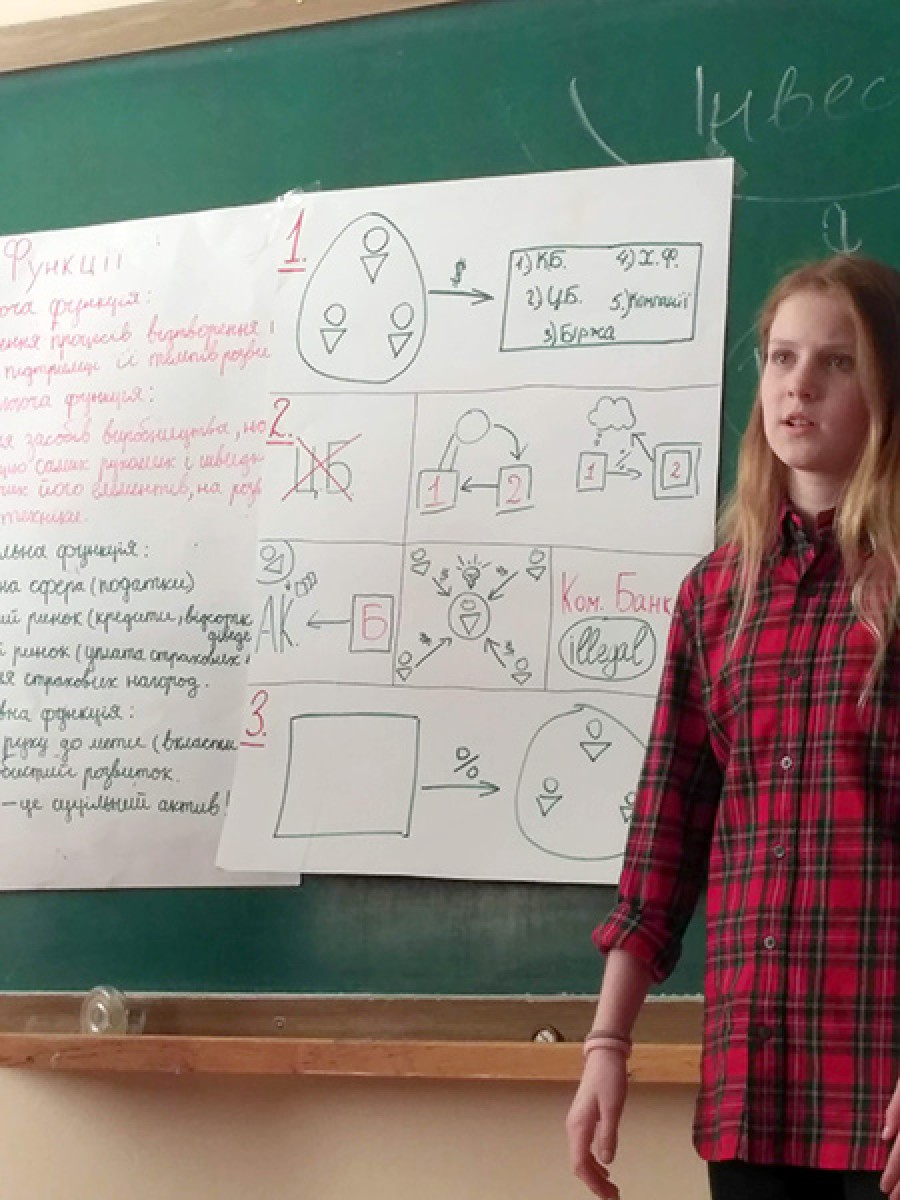 Інвес
Функції
юча функція:
ння процесів відтворення і
підтримці її темпів розви
лююча функція:
я засобів виробництва, но
чик його елементів, на роз
техніки.
льна функція:
на сфера (податки)
ий ринок (кредити, відсотк
дивіде
й ринок (уплата страхових
ня страхових нагород.
вна функція:
руху до мети (вкласти
бистий розвиток.
– це суцільний актив!
1.
$
1) КБ. 4) І.Ф.
2) ЦБ. 5.) Компанії
3) Біржа
2.
ЦБ
1 2
1 2
АК. Б
$ $
$ $
Ком. Банк
illegal
3.
%